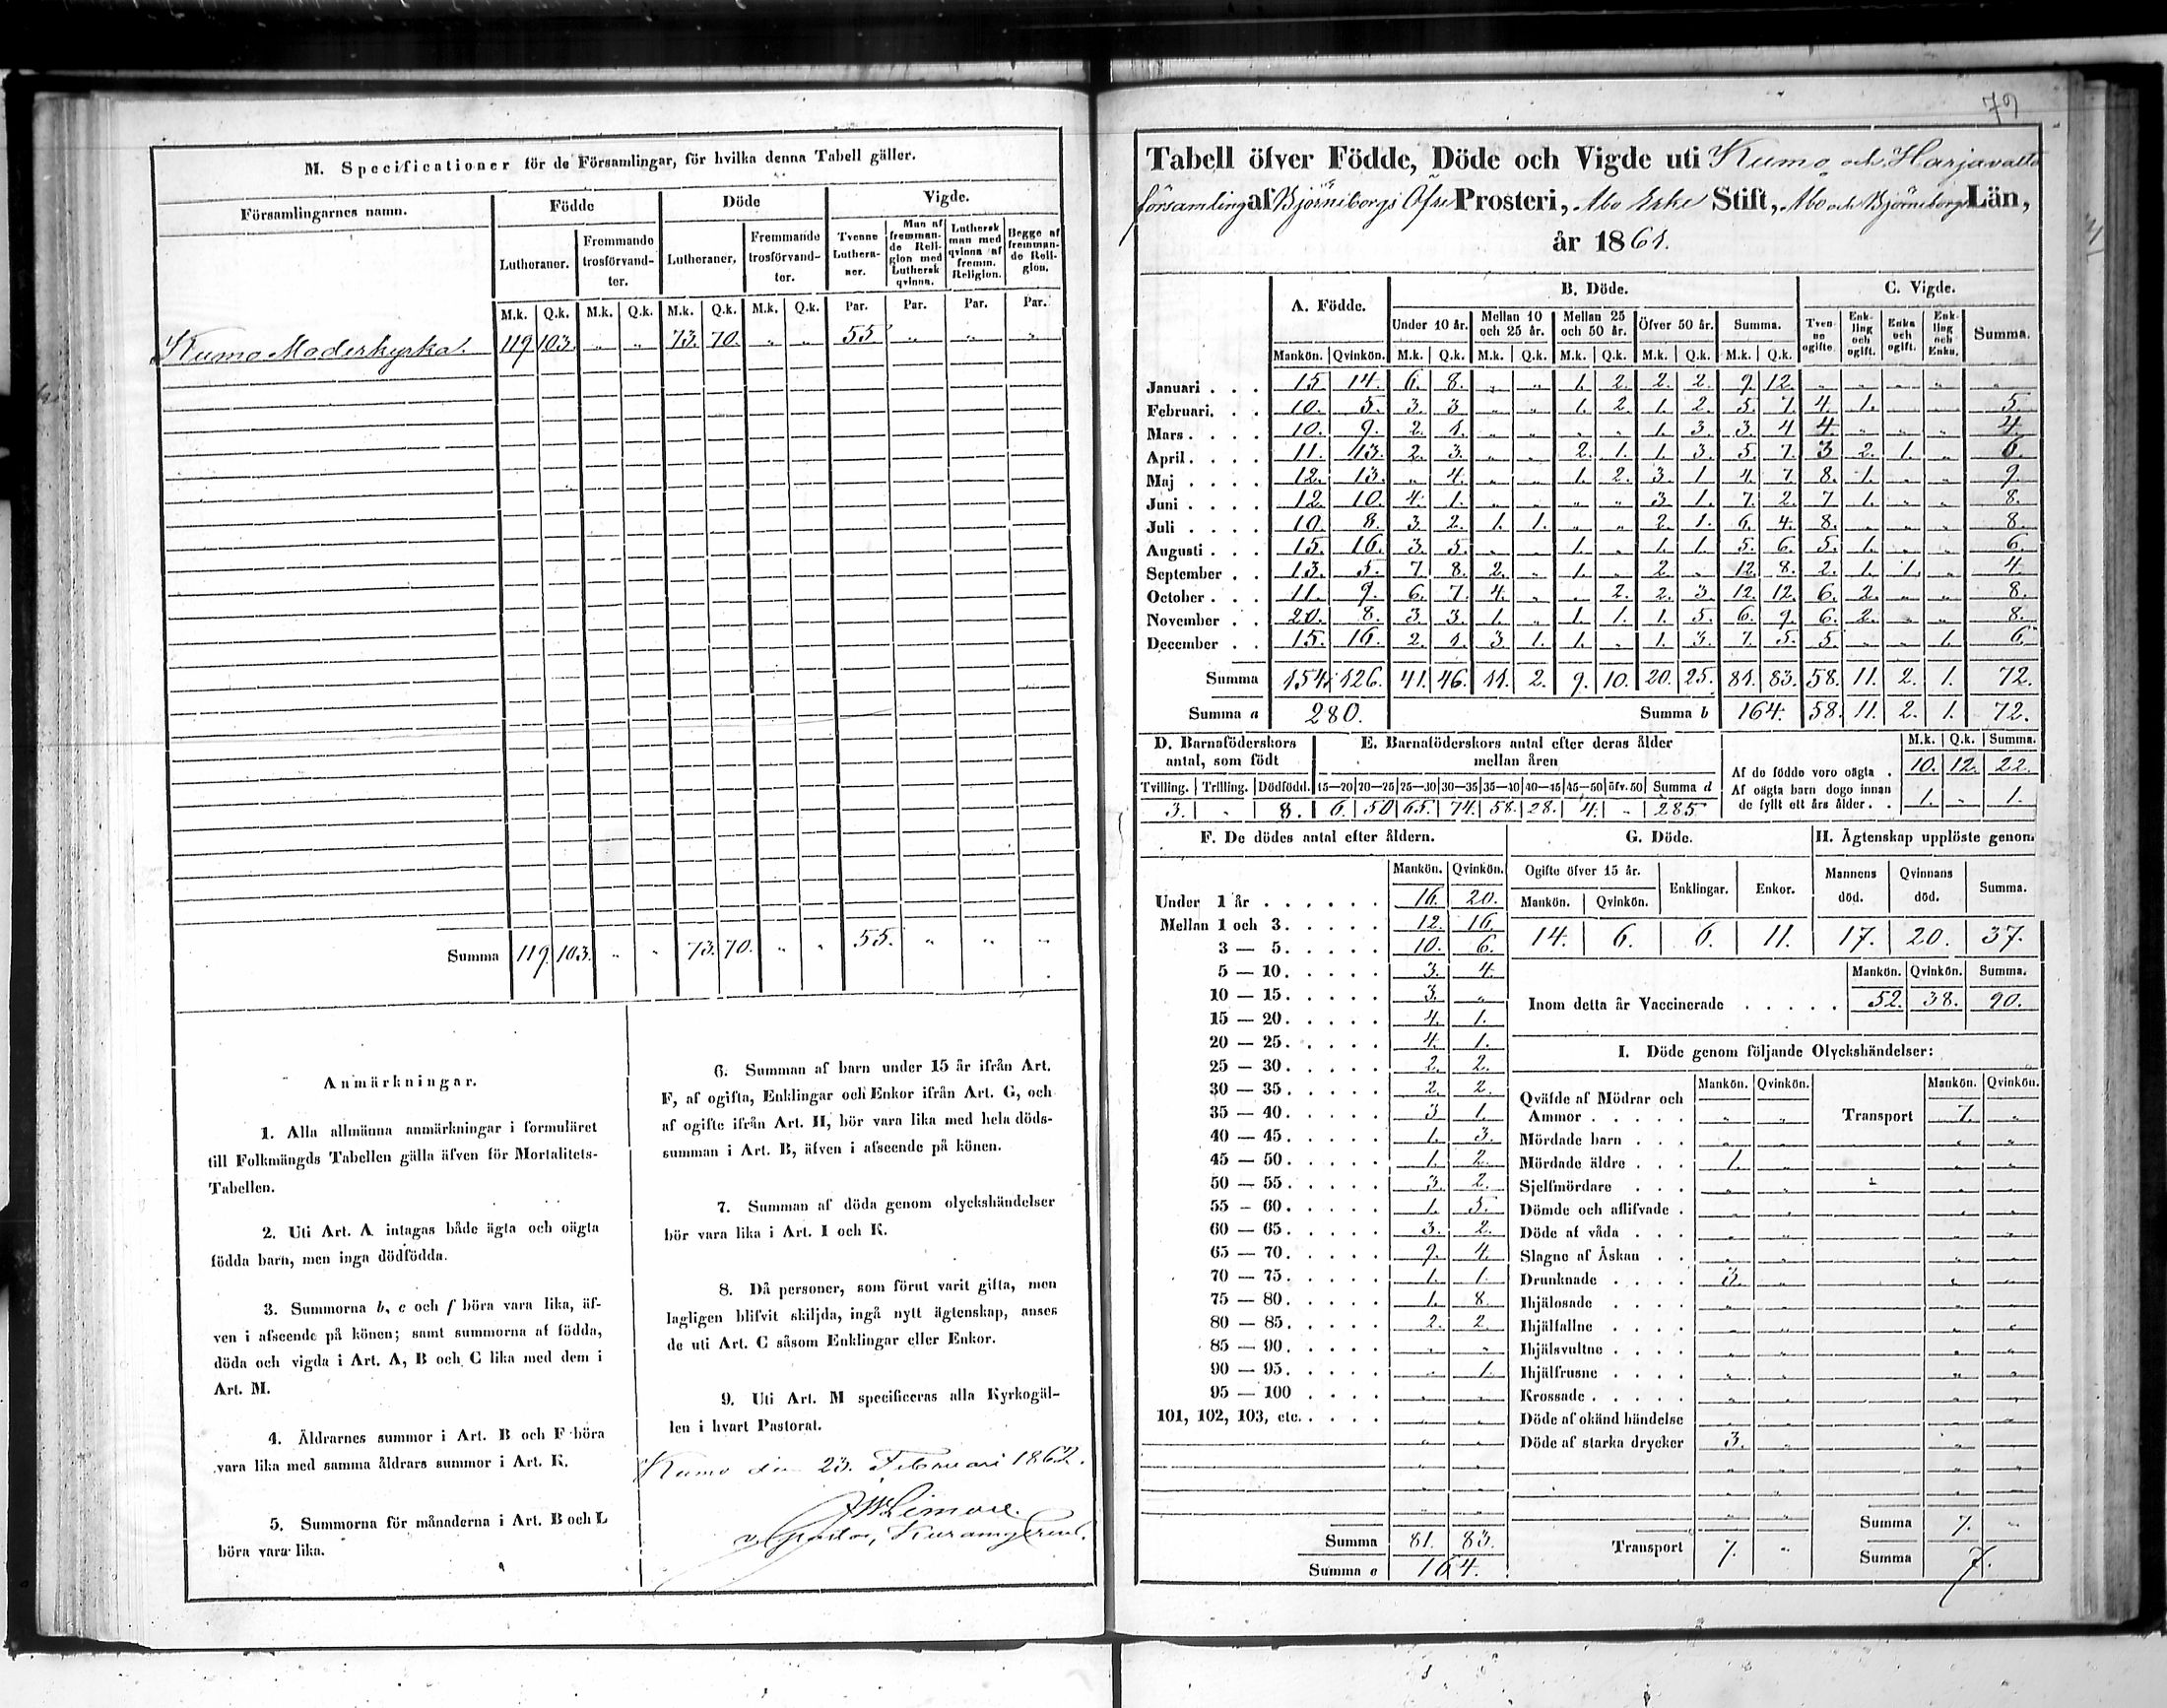 M. Specificationer för de Församlingar, för hvilka denna Tabell gäller.
Församlingarnes namn. Födde Döde Vigde.
Lutheraner. Fremmande trosförvandter. Lutheraner. Fremmande trosförvandter. Tvenne Lutheraner. Man af fremmande Religion med Luthersk qvinna. Luthersk man med qvinna af fremm. Religion. Begge af fremmande Religion.
M.k. Q.k. M.k. Q.k. M.k. Q.k. M.k. Q.k. Par. Par. Par. Par.
Kumo Moderkyrka. 119 103. „ „ 73. 70. „ „ 55 „ „ „
Summa 119. 103. „ „ 73. 70. „ „ 55. „ „ „
Anmärkningar.
1. Alla allmänna anmärkningar i formuläret
till Folkmängds Tabellen gälla äfven för Mortalitets-
Tabellen.
2. Uti Art. A intagas både ägta och oägta
födda barn, men inga dödfödda.
3. Summorna b, c och f böra vara lika, äf-
ven i afseende på könen; samt summorna af födda,
döda och vigda i Art. A, B och C lika med dem i
Art. M.
4. Äldrarnes summor i Art. B och F böra
vara lika med samma åldrars summor i Art. K.
5. Summorna för månaderna i Art. B och L
böra vara lika.
6. Summan af barn under 15 år ifrån Art.
F, af ogifta, Enklingar och Enkor ifrån Art. G, och
af ogifte ifrån Art. H, bör vara lika med hela döds-
summan i Art. B, äfven i afseende på könen.
7. Summan af döda genom olyckshändelser
bör vara lika i Art. I och K.
8. Då personer, som förut varit gifta, men
lagligen blifvit skiljda, ingå nytt ägtenskap, anses
de uti Art. C såsom Enklingar eller Enkor.
9. Uti Art. M specificeras alla Kyrkogäl-
len i hvart Pastorat.
Kumo den 23. Februari 1862.
79
Tabell öfver Födde, Döde och Vigde uti Kumo och Harjavalta
församling af Björneborgs Öfre Prosteri, Åbo Erke Stift, Åbo och Björneborgs Län,
år 1861.
A. Födde. B. Döde. C. Vigde.
Under 10 år. Mellan 10 och 25 år. Mellan 25 och 50 år. Öfver 50 år. Summa. Tvenne ogifte. Enkling och ogift. Enka och ogift. Enkling och Enka. Summa.
Mankön. Qvinkön. M.k. Q.k. M.k. Q.k. M.k. Q.k. M.k. Q.k. M.k. Q.k.
Januari . . . 15 14. 6. 8. „ „ 1. 2. 2. 2. 9. 12. „ „ „ „
Februari. . . 10. 5. 3. 3 „ „ 1. 2. 1. 2. 5. 7. 4. 1. 5.
Mars . . . . 10. 9. 2. 1. „ „ „ „ 1. 3. 3. 4 4. „ „ „ 4.
April . . . . 11. 13. 2. 3. „ „ 2. 1. 1. 3. 5. 7. 3 2. 1. „ 6.
Maj . . . . 12. 13. „ 4. „ „ 1. 2. 3. 1 4. 7 8. 1. „ „ 9.
Juni . . . . 12. 10. 4. 1. „ „ „ „ 3 1. 7. 2. 7 1. „ „ 8.
Juli . . . . 10. 8. 3. 2. 1. 1. „ „ 2. 1. 6. 4. 8. „ „ „ 8.
Augusti . . . 15. 16. 3. 5. „ „ 1. „ 1. 1. 5. 6. 5. 1. „ „ 6.
September . . 13. 5. 7. 8. 2. „ 1. „ 2. „ 12. 8. 2. 1. 1. „ 4.
October . . . 11. 9. 6. 7. 4. „ „ 2. 2. 3. 12. 12. 6. 2. „ „ 8.
November . . 20. 8. 3. 3. 1. „ 1. 1. 1. 5. 6. 9. 6. 2. „ „ 8.
December . . 15. 16. 2. 1. 3. 1. 1. „ 1. 3. 7. 5. 5. „ „ 1. 6.
Summa 154. 126. 41. 46. 11. 2. 9. 10. 20. 25. 81. 83. 58. 11. 2. 1. 72.
Summa a 280. Summa b 164. 58. 11. 2. 1. 72.
D. Barnaföderskors antal, som födt E. Barnaföderskors antal efter deras ålder mellan åren M.k. Q.k. Summa.
Tvilling. Trilling. Dödfödd. 15—20 20—25 25—30 30—35 35—40 40—45 45—50 öfv. 50 Summa d
3. „ 8. 6. 50 65. 74. 58. 28. 4. „ 285
Af de födde voro oägta . 10. 12. 22.
Af oägta barn dogo innan de fyllt ett års ålder . . 1. „ 1.
F. De dödes antal efter åldern. G. Döde. H. Ägtenskap upplöste genom
Mankön. Qvinkön.
Under 1 år . . . . . . 16. 20.
Mellan 1 och 3. . . . . 12. 16.
3 — 5. . . . . 10. 6.
5 — 10. . . . . 3. 4.
10 — 15. . . . . 3. „
15 — 20. . . . . 4. 1.
20 — 25. . . . . 4. 1.
25 — 30. . . . . 2. 2.
30 — 35. . . . . 2. 2.
35 — 40. . . . . 3 1.
40 — 45. . . . . 1. 3.
45 — 50. . . . . 1. 2.
50 — 55. . . . . 3. 2.
55 — 60. . . . . 1. 5.
60 — 65. . . . . 3. 2.
65 — 70. . . . . 9. 4.
70 — 75. . . . . 1. 1.
75 — 80. . . . . 1. 8.
80 — 85. . . . . 2. 2.
85 — 90. . . . . „ „
90 — 95. . . . . „ 1.
95 — 100 . . . . „ „
101, 102, 103, etc. . . . . „ „
Summa 81. 83.
Summa e 164.
Ogifte öfver 15 år. Enklingar. Enkor. Mannens död. Qvinnans död. Summa.
Mankön. Qvinkön.
14. 6. 6. 11. 17. 20. 37.
Mankön. Qvinkön. Summa.
Inom detta år Vaccinerade . . . . . 52. 38. 90.
I. Döde genom följande Olyckshändelser:
Mankön. Qvinkön. Mankön. Qvinkön.
Qväfde af Mödrar och Ammor . . . . . „ „ Transport 7. „
Mördade barn . . . „ „
Mördade äldre . . . 1. „
Sjelfmördare . . . „ „
Dömde och aflifvade . „ „
Döde af våda . . . „ „
Slagne af Åskan . . „ „
Drunknade . . . . 3. „
Ihjälosade . . . . „ „
Ihjälfallne . . . . „ „
Ihjälsvultne . . . . „ „
Ihjälfrusne . . . . „ „
Krossade . . . . . „ „
Döde af okänd händelse „ „
Döde af starka drycker 3. „
Summa 7. „
Transport 7. „ Summa 7.